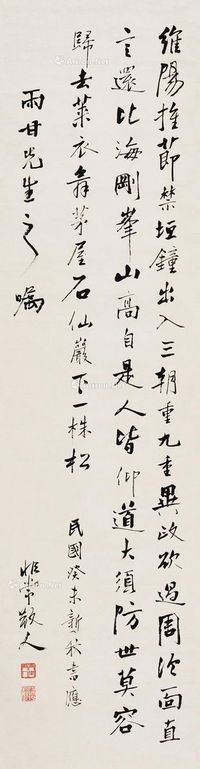 維陽推節禁垣鐘出入三朝重九重異政欲過周冷面直
言還比海剛峯山高自是人皆仰道大須防世莫容
歸去萊衣舞茅屋石仙巖下一株松
民國癸未新秋書應
雨甘先生之囑
常散人